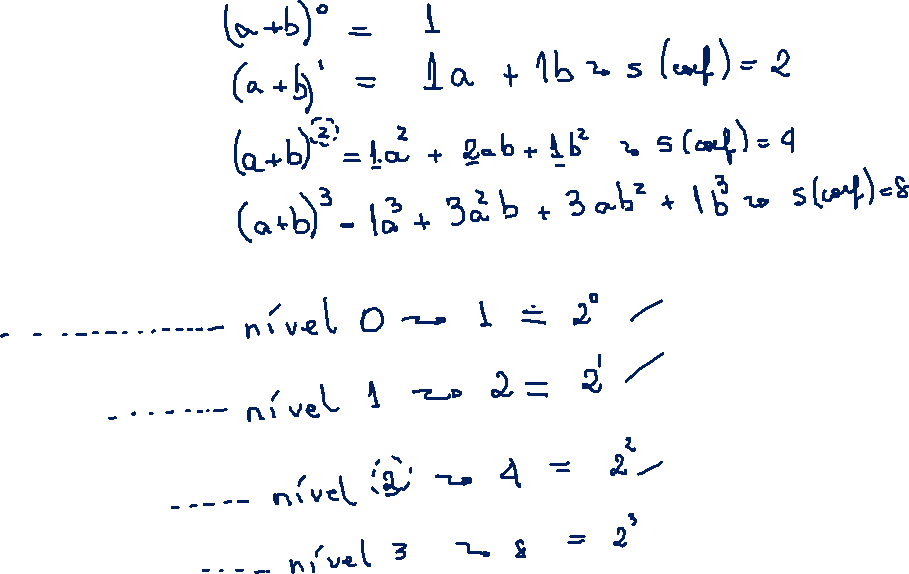 (a+b)⁰ = 1
(a+b)¹ = 1a + 1b ⇝ s(coef) = 2
(a+b)² = 1.a² + 2ab + 1b² ⇝ s(coef) = 4
(a+b)³ - 1a³ + 3a²b + 3ab² + 1b³ ⇝ s(coef) = 8
nível 0 ⇝ 1 = 2⁰
nível 1 ⇝ 2 = 2¹
nível 2 ⇝ 4 = 2²
nível 3 ⇝ 8 = 2³